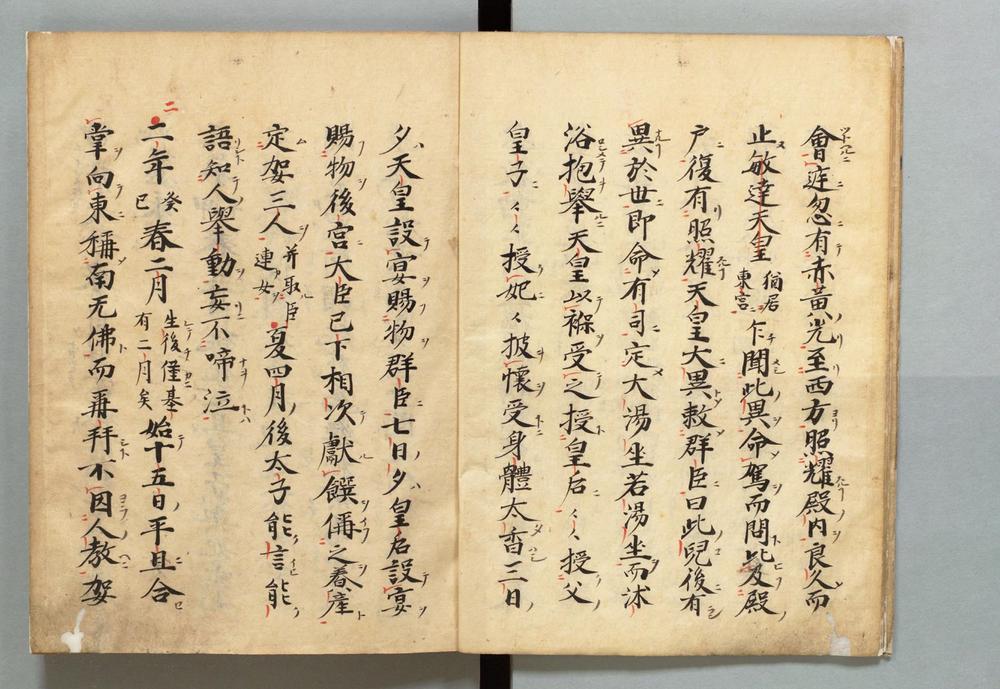 會庭忽有赤黄光至西方照耀殿内良久而
止敏達天皇猶居東宮乍聞此異命駕而問比及殿
戸復有照耀天皇大異敕群臣曰此兒後有
異於世即命有司定大湯坐若湯坐而沐
浴抱舉天皇以褓受之授皇后々々授父
皇子々々授妃々披懷受身體太香三日
夕天皇設宴賜物群臣七日夕皇后設宴
賜物後宮大臣已下相次獻饌俑之養産
定㛗三人并取臣連女夏四月後太子能言能
語知人舉動妄不啼泣
二
二年癸巳春二月生後僅基有二月矣始十五日平旦合
掌向東稱南无佛而再拜不因人教㛗